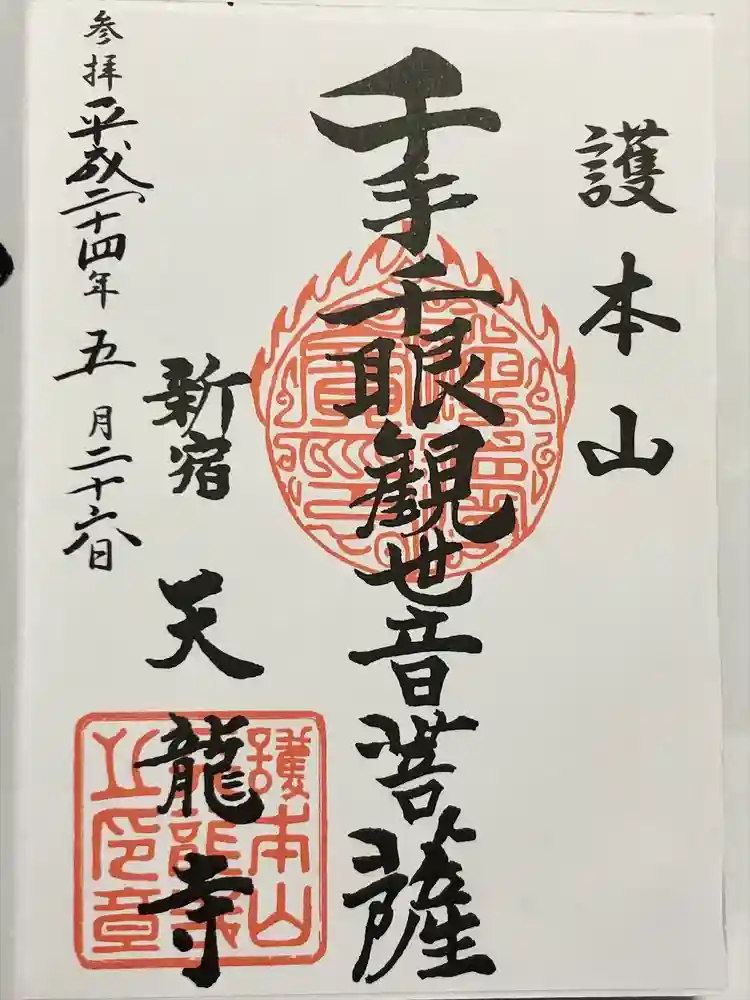 護本山
千手千眼観世音菩薩
新宿 天龍寺
参拝 平成二十四年五月二十六日
護本山
天龍寺
之印章